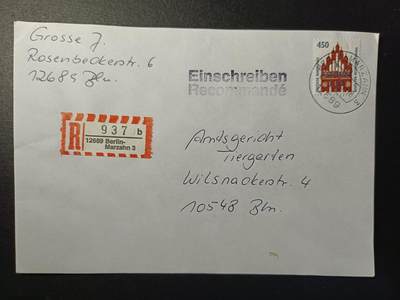 Grosse J.
Rosenbeckerstr. 6
12689 Bln.
450
Einschreiben
Recommandé
R 937 b
12689 Berlin-
Marzahn 3
Amtsgericht
Tiergarten
Wilsnackerstr. 4
10548 Bln.